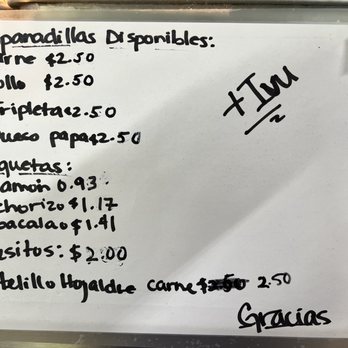 panadillas Disponibles:
arne $2.50
ollo $2.50
+ Ivu
ripleta $2.50
ueso papa $2.50
quetas:
amon 0.93
chorizo $1.17
bacalao $1.41
esitos: $2.00
telillo Hojaldre carne $2.50 2.50
Gracias